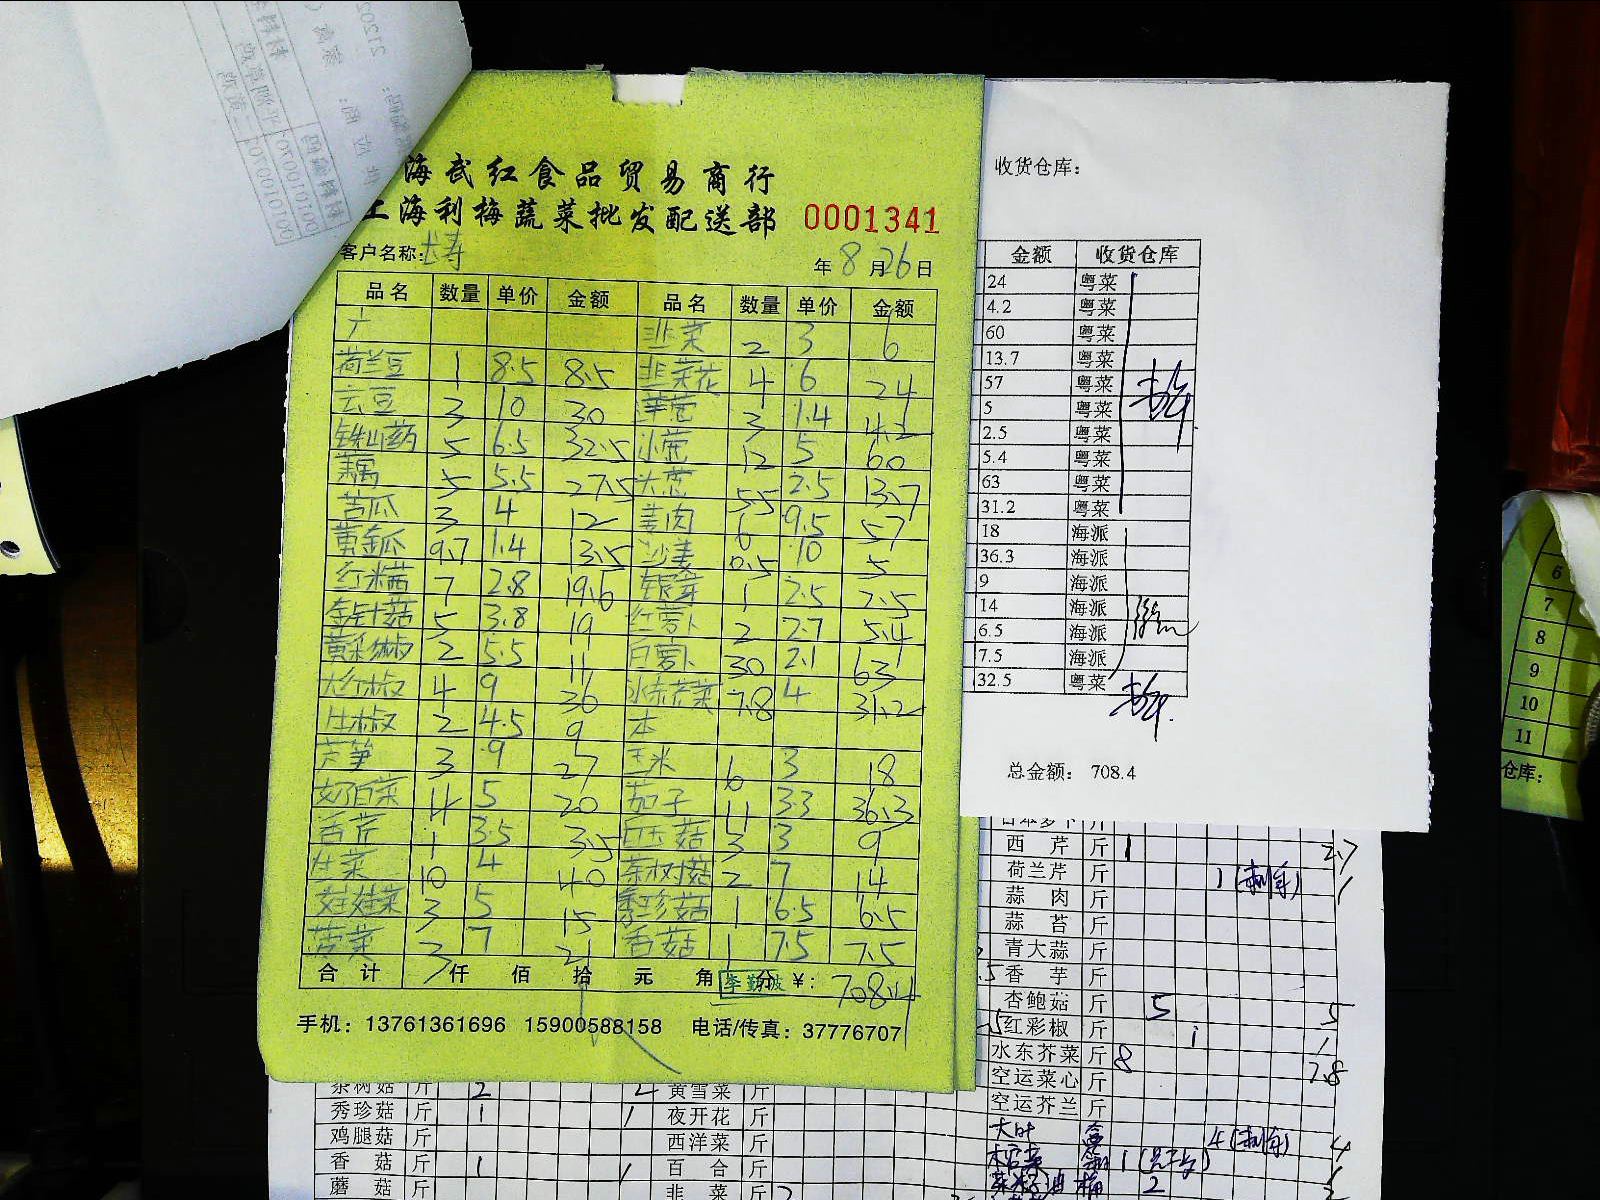 海武红食品贸易商行
上海利梅蔬菜批发配送部 0001341
客户名称: 长寿 年 8 月 26 日
品名 数量 单价 金额 品名 数量 单价 金额
韭菜 2 3 6
荷兰豆 1 8.5 8.5 韭菜花 4 6 24
云豆 3 10 30 3 1.4 4.2
铁山药 5 6.5 32.5 小葱 12 5 60
藕 5 5.5 27.5 大葱 5.5 2.5 13.7
苦瓜 3 4 12 姜肉 6 9.5 57
黄金瓜 9.7 1.4 13.5 沙姜 0.5 10 5
7 2.8 19.6 银芽 1 2.5 2.5
金针菇 5 3.8 19 红萝卜 2 2.7 5.4
黄彩椒 2 5.5 11 白萝卜 30 2.1 63
大红椒 4 9 36 水东芥菜 7.8 4 31.2
2 4.5 9 本
芦笋 3 9 27 玉米 6 3 18
奶白菜 4 5 20 茄子 11 33 36.3
香芹 1 3.5 3.5 白玉菇 3 3 9
生菜 10 4 40 茶树菇 2 7 14
娃娃菜 3 5 15 秀珍菇 1 6.5 6.5
3 7 21 香菇 1 7.5 7.5
合计 仟 佰 拾 元 角 分 ¥: 708.4
李勤波
手机: 13761361696 15900588158 电话/传真: 37776707
收货仓库:
金额 收货仓库
24 粤菜
4.2 粤菜
60 粤菜
13.7 粤菜
57 粤菜
5 粤菜
2.5 粤菜
5.4 粤菜
63 粤菜
31.2 粤菜
18 海派
36.3 海派
9 海派
14 海派
6.5 海派
7.5 海派
32.5 粤菜
总金额: 708.4
西芹 斤 1 2.7
荷兰芹 斤 1 1
蒜肉 斤
蒜苔 斤
青大蒜 斤
香芋 斤
杏鲍菇 斤 5 5
红彩椒 斤 1 1
水东芥菜 斤 8 7.8
空运菜心 斤
空运芥兰 斤
大叶 盒 4 4
茶树菇 斤 2 2 黄雪菜 斤
秀珍菇 斤 1 1 夜开花 斤
鸡腿菇 斤 西洋菜 斤
香菇 斤 1 1 百合 斤
蘑菇 斤 韭菜 斤 2
6
7
8
9
10
11
仓库: